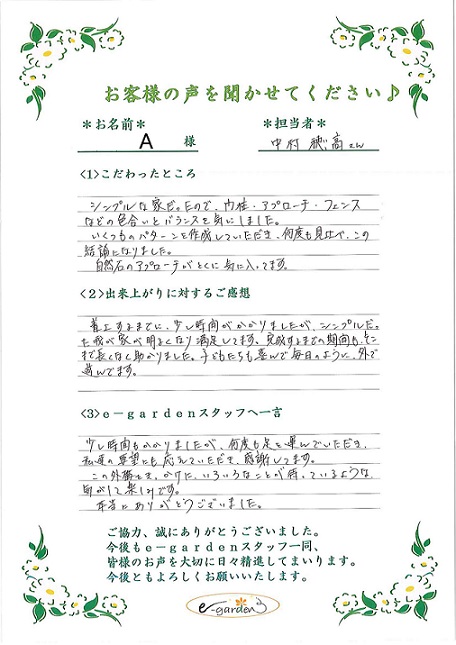 お客様の声を聞かせてください♪
＊お名前＊
A 様
＊担当者＊
中村 穂高さん
<1>こだわったところ
シンプルな家だったので、門柱・アプローチ・フェンス
などの色合いとバランスを気にしました。
いくつものパターンを作成していただき、何度も見比べ、この
結論になりました。
自然石のアプローチがとくに気に入ってます。
<2>出来上がりに対するご感想
着工するまでに、少し時間がかかりましたが、シンプルだっ
た我が家が明るくなり満足してます。完成するまでの期間も、そこ
まで長くなく助かりました。子どもたちも喜んで毎日のように、外で
遊んでます。
<3>e－gardenスタッフへ一言
少し時間もかかりましたが、何度も足を運んでいただき、
私達の要望にも応えていただき、感謝してます。
この外構を、きっかけに、いろいろなことが待っているような
気がして楽しみです。
本当にありがとうございました。
ご協力、誠にありがとうございました。
今後もe－gardenスタッフ一同、
皆様のお声を大切に日々精進してまいります。
今後ともよろしくお願いいたします。
e-garden